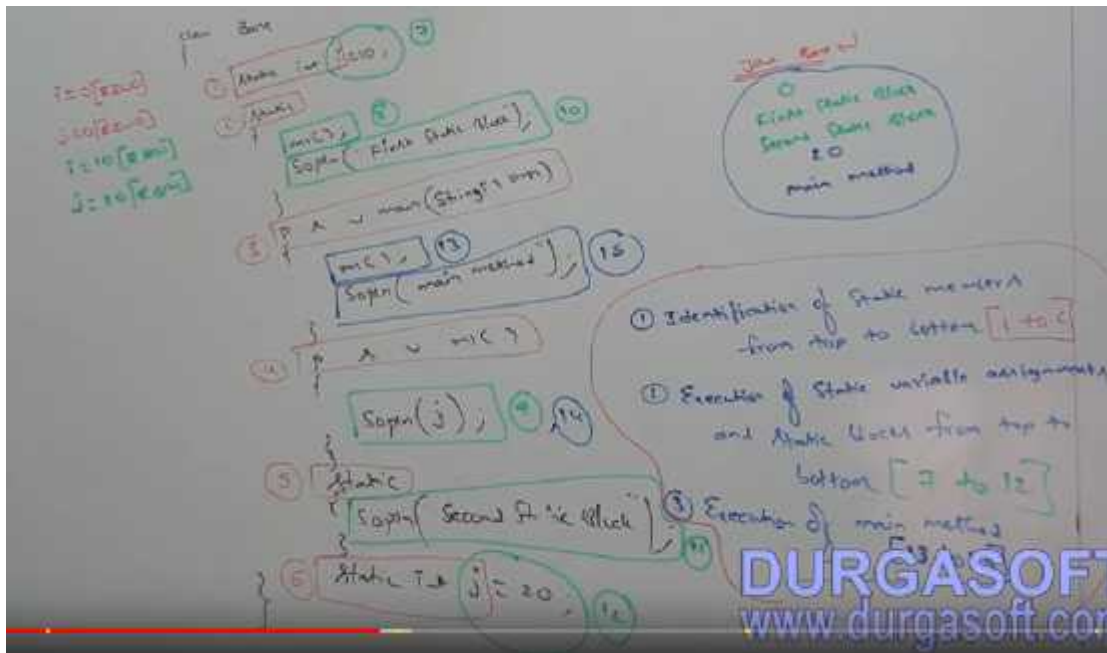 class Base
{
① static int i=10; ⑦
② static
{
m1(); ⑧
Sopln("First Static Block"); ⑩
}
③ p s v main(String[] args)
{
m1(); ⑬
Sopln("main method"); ⑮
}
④ p s v m1()
{
Sopln(j); ⑨ ⑭
}
⑤ static
{
Sopln("Second Static Block"); ⑪
}
⑥ static int j=20; ⑫
}
i=0[RIWO]
j=0[RIWO]
i=10[R&W]
j=20[R&W]
Java Base ↵
0
First Static Block
Second Static Block
20
main method
① Identification of Static members
from top to bottom [1 to 6]
② Execution of Static variable assignments
and static blocks from top to
bottom [7 to 12]
③ Execution of main method
DURGASOFT
www.durgasoft.com